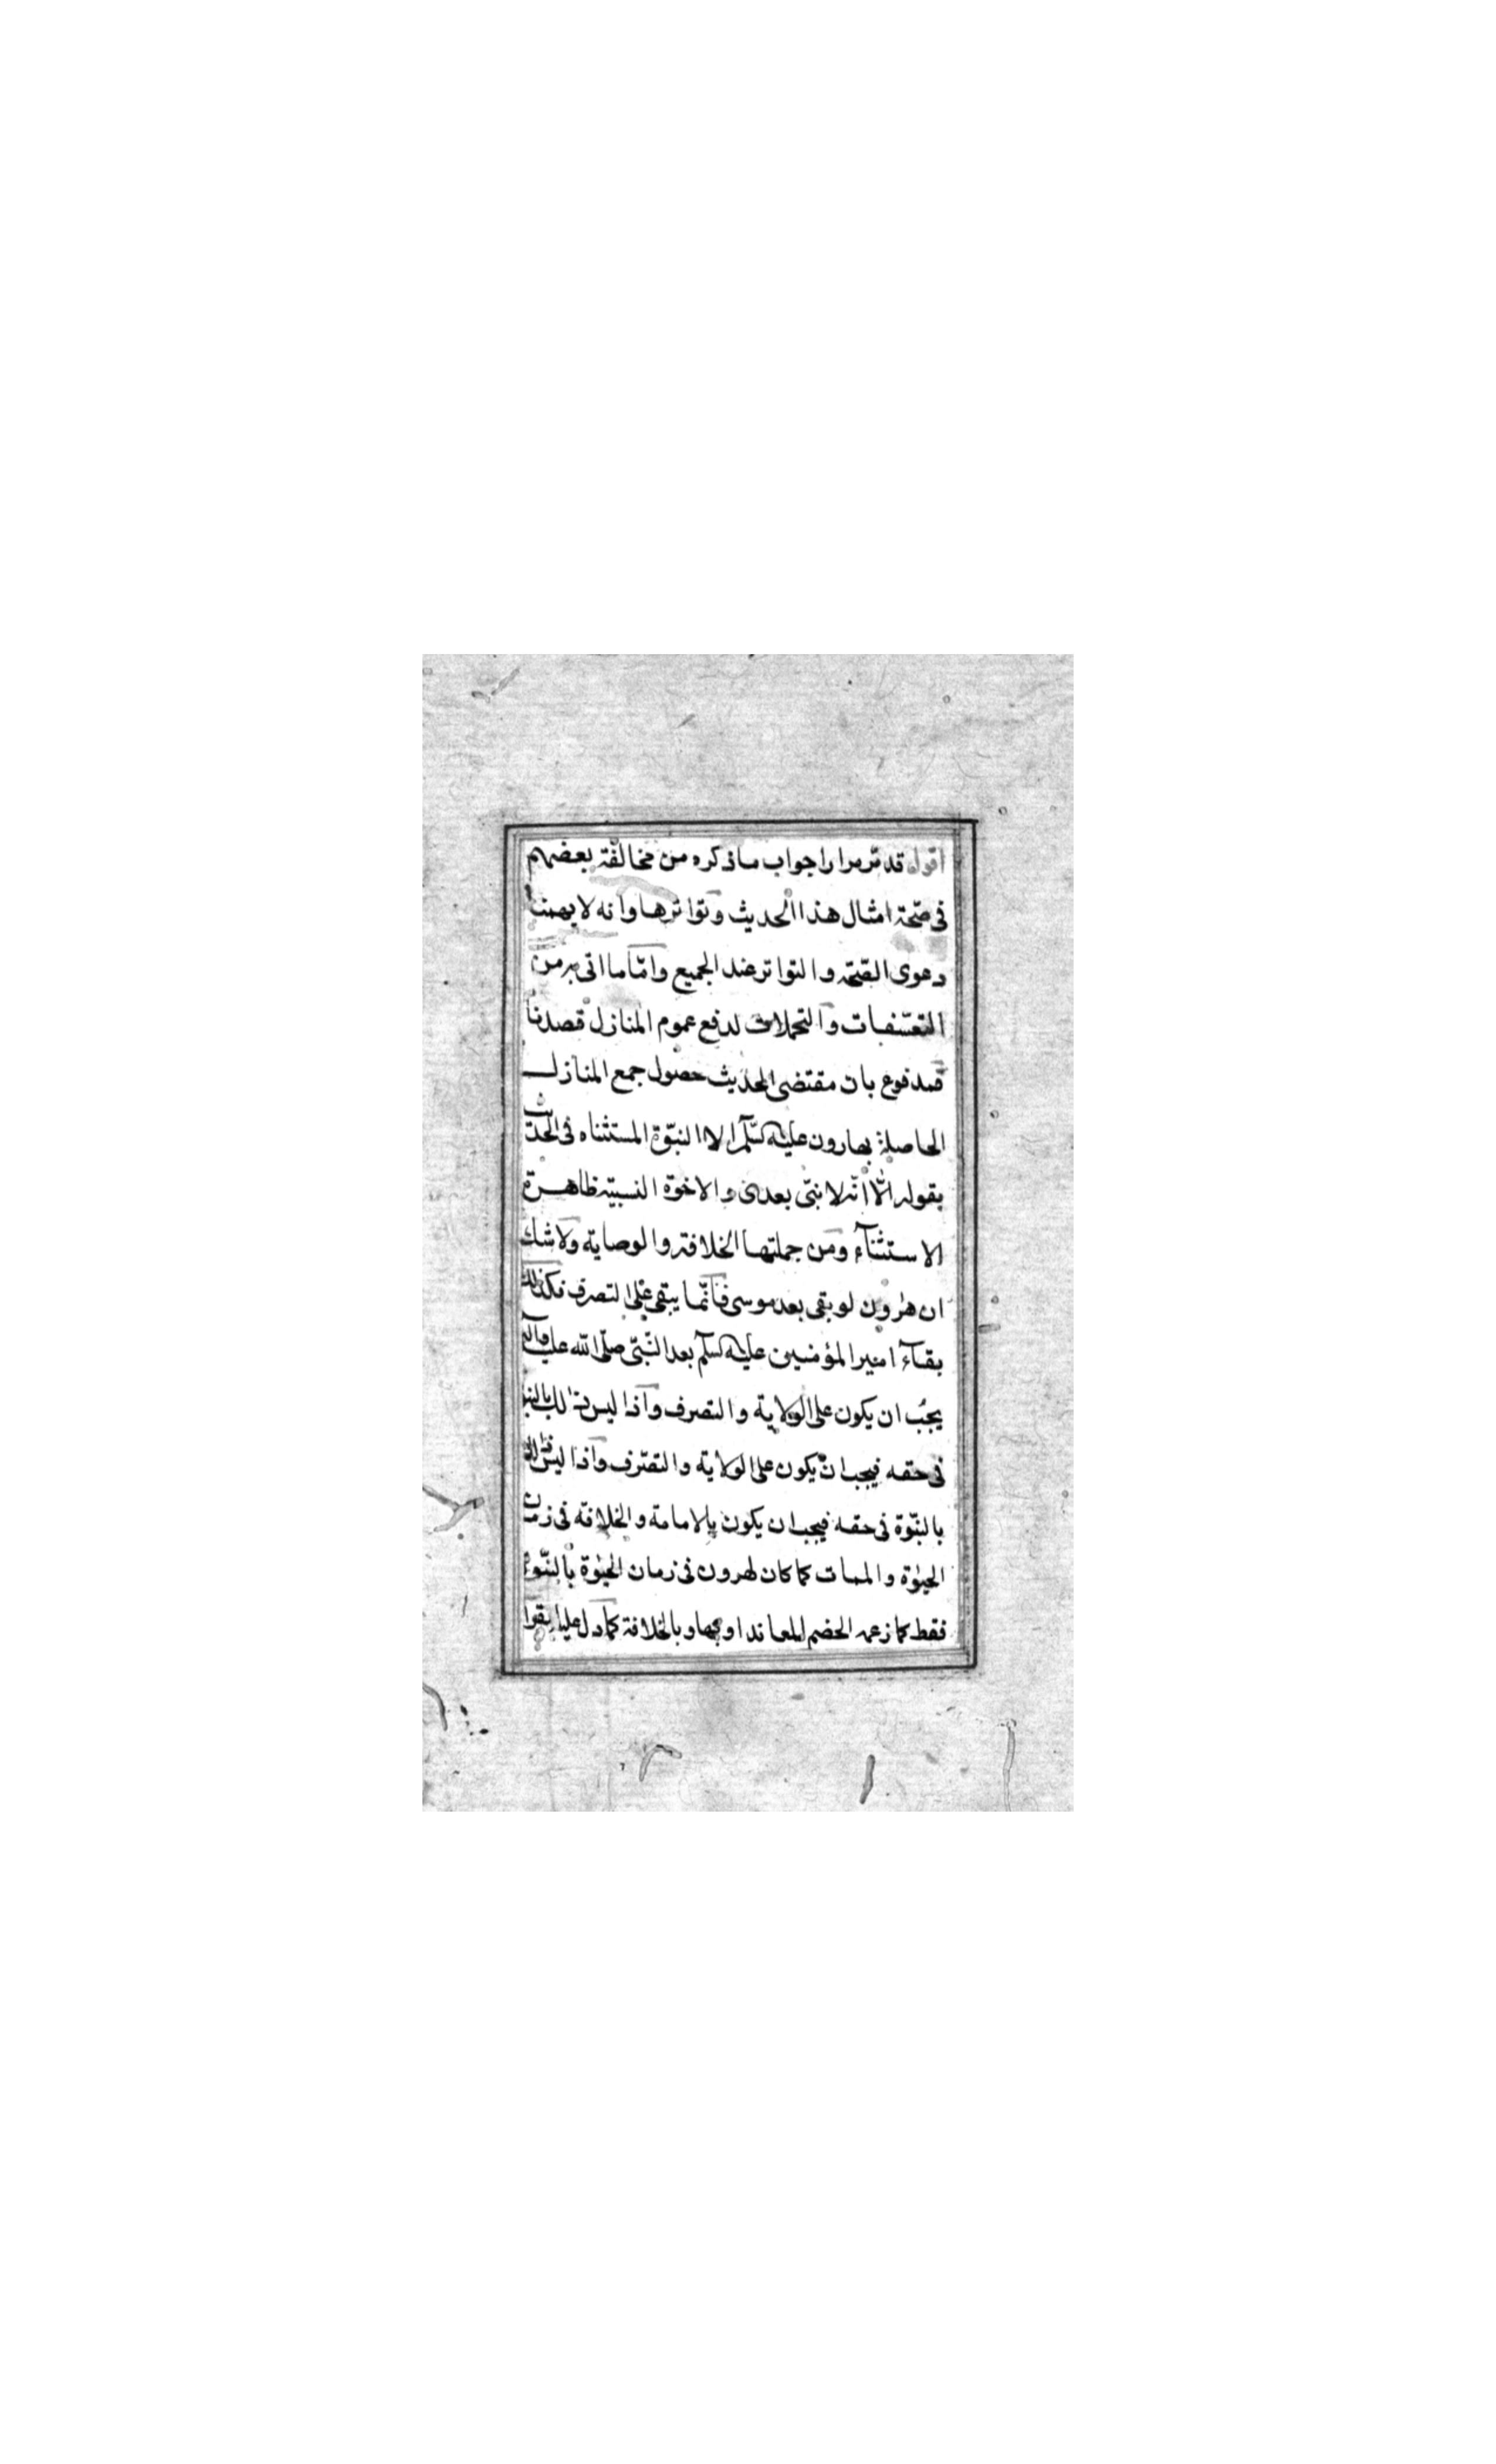 اقول قد مر مرارا جواب ما ذكره من مخالفة بعضهم
فى صحّة امثال هذا الحديث وتواترها وانه لا يهمنا
دعوى الصّحّة والتواتر عند الجميع وامّا ما اتى به من
التعسّفات والتحملات لدفع عموم المنازل قصدنا
فمدفوع بان مقتضى الحديث حصول جمع المنازل
الحاصلة بهارون عليه السّلم الا النبوّة المستثناه فى الحديث
بقوله الّا انّه لا نبىّ بعدى والاخوّة النسبيّة ظاهرة
الاستثنآء ومن جملتها الخلافة والوصاية ولا شك
ان هٰرون لو بقى بعد موسى فانّما يبقى على التصرف فكذلك
بقآء امير المؤمنين عليه السلم بعد النّبىّ صلّى الله عليه وآله
يجب ان يكون على الولاية والتصرف واذا ليس ذلك بالنبوة
فى حقه فيجب ان يكون على الولاية والتصّرف واذا ليس ذلك
بالنبّوة فى حقه فيجب ان يكون بالامامة والخلافة فى زمان
الحيٰوة والممات كما كان لهرون فى زمان الحيٰوة بالنبّوة
فقط كما زعمه الخصم المعاند او بها وبالخلافة كما دل عليه بقوله